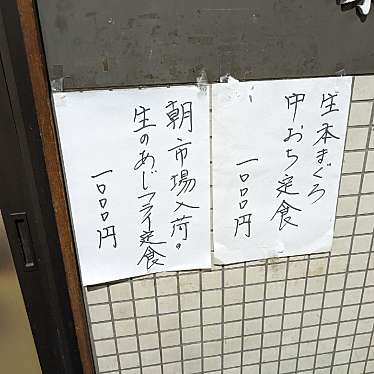 生本まぐろ
中おち定食
一〇〇〇円
朝市場入荷。
生のあじフライ定食
一〇〇〇円